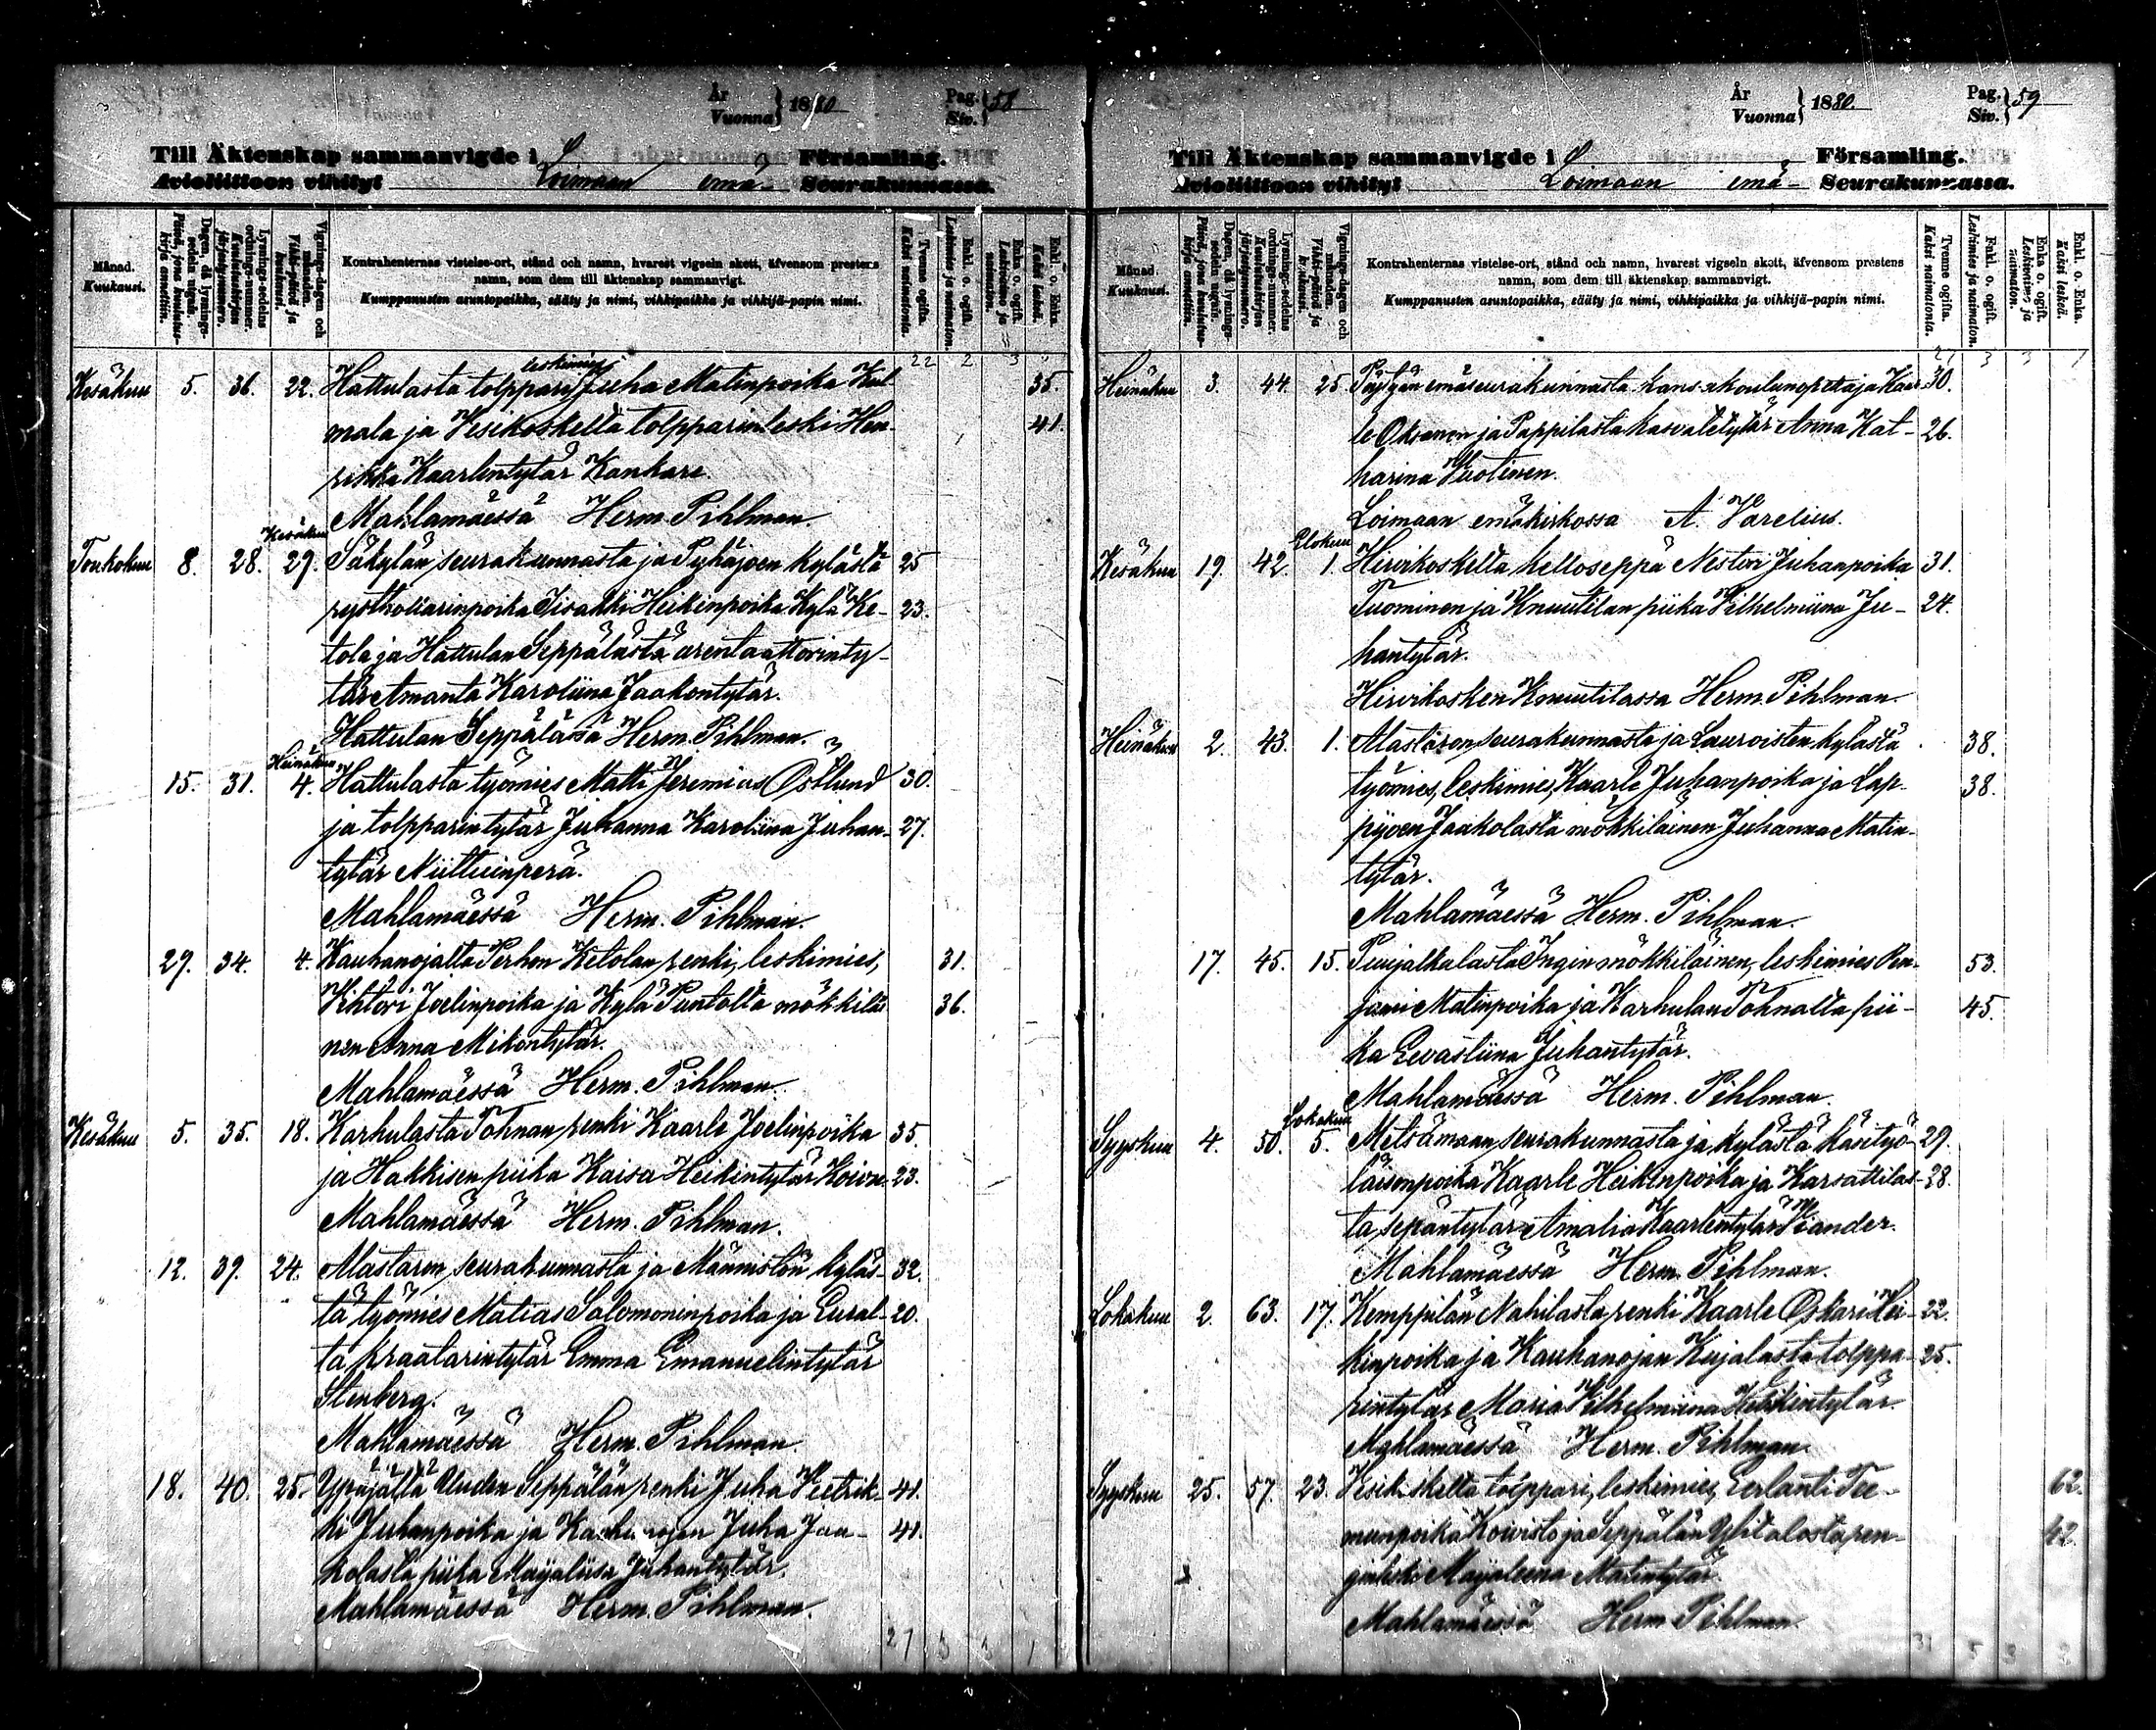 År Vuonna } 1880 Pag. Siv. } 58
Till Äktenskap sammanvigde i L Församling.
Avioliittoon vihityt Loimaan emä- Seurakunnassa.
Månad. Kuukausi.
Dagen, då lysnings-sedeln utgafs. Päivä, jona kuulutus-kirja annettiin.
Lysnings-sedelns ordnings-nummer. Kuulutuskirjan järjestysnumero.
Vignings-dagen och månaden. Vihki-päivä ja kuukausi.
Kontrahenternas vistelse-ort, stånd och namn, hvarest vigseln skett, äfvensom prestens
namn, som dem till äktenskap sammanvigt.
Kumppanusten asuntopaikka, sääty ja nimi, vihkipaikka ja vihkijä-papin nimi.
Tvenne ogifta. Kaksi naimatonta.
Enkl. o. ogift. Leskimies ja naimaton.
Enka o. ogift. Leskivaimo ja naimaton.
Enkl. o. Enka. Kaksi leskeä.
22 2 3
leskimies
Kesäkuu 5. 36. 22. Hattulasta tolppari Juha Matinpoika Kul- 35.
mala ja Vesikoskelta tolpparinleski Hen- 41.
rikka Kaarlentytär Kankare.
Mahlamäessä Herm. Pihlman.
Kesäkuu
Toukokuu 8. 28. 29. Säkylän seurakunnasta ja Pyhäjoen kylästä 25
rusthollarinpoika Iisakki Heikinpoika Kylä Ke- 23.
tola ja Hattulan Seppälästä arentaattorinty-
tär Amanta Karoliina Jaakontytär.
Hattulan Seppälässä Herm. Pihlman.
Heinäkuu
15. 31. 4. Hattulasta työmies Matti Jeremias Östlund 30.
ja tolpparintytär Juhanna Karoliina Juhan- 27.
tytär Niittuinperä.
Mahlamäessä Herm. Pihlman.
29. 34. 4. Kauhanojalta Perhon Ketolan renki, leskimies, 31.
Vihtori Joelinpoika ja Kylä Puntolta mökkiläi 36.
nen Anna Mikontytär.
Mahlamäessä Herm. Pihlman.
Kesäkuu 5. 35. 18. Karhulasta Töhnan renki Kaarle Joelinpoika 35.
ja Hakkisen piika Kaisa Heikintytär Koivu. 23.
Mahlamäessä Herm. Pihlman.
12. 39. 24. Alastaron seurakunnasta ja Männistön kyläs- 32.
tä työmies Matias Salomoninpoika ja Eural- 20.
ta kraatarintytär Emma Emanuelintytär
Stenberg.
Mahlamäessä Herm. Pihlman.
18. 40. 25. Ypäjältä Uuden Seppälän renki Juha Vietrik- 41.
ki Juhanpoika ja Kauhanojan Juha Jaa- 41.
kolasta piika Maijaliisa Juhantytär.
Mahlamäessä Herm. Pihlman.
27 3 3 1
År Vuonna } 1880. Pag. Siv. } 59
Till Äktenskap sammanvigde i L Församling.
Avioliittoon vihityt Loimaan emä- Seurakunnassa.
Månad. Kuukausi.
Dagen, då lysnings-sedeln utgafs. Päivä, jona kuulutus-kirja annettiin.
Lysnings-sedelns ordnings-nummer. Kuulutuskirjan järjestysnumero.
Vignings-dagen och månaden. Vihki-päivä ja kuukausi.
Kontrahenternas vistelse-ort, stånd och namn, hvarest vigseln skett, äfvensom prestens
namn, som dem till äktenskap sammanvigt.
Kumppanusten asuntopaikka, sääty ja nimi, vihkipaikka ja vihkijä-papin nimi.
Tvenne ogifta. Kaksi naimatonta.
Enkl. o. ogift. Leskimies ja naimaton.
Enka o. ogift. Leskivaimo ja naimaton.
Enkl. o. Enka. Kaksi leskeä.
27 3 3 1
Heinäkuu 3. 44. 25. Pöytyän emäseurakunnasta kansakoulunopettaja Kaar- 30.
le Oksanen ja Pappilasta kasvatetytär Anna Kat- 26.
harina Vuotinen.
Loimaan emäkirkossa A. Varelius.
Elokuu
Kesäkuu 19. 42. 1. Hirvikoskelta kelloseppä Nestori Juhanpoika 31.
Tuominen ja Knuutilan piika Vilhelmiina Ju- 24.
hantytär.
Hirvikosken Knuutilassa Herm. Pihlman.
Heinäkuu 2. 43. 1. Alastaron seurakunnasta ja Lauroisten kylästä 38.
työmies, leskimies, Kaarle Juhanpoika ja Lap- 38.
pijoen Jaakolasta mökkiläinen Juhanna Matin-
tytär.
Mahlamäessä Herm. Pihlman.
17. 45. 15. Puujalkalasta Ingin mökkiläinen, leskimies Pen- 53.
jami Matinpoika ja Karhulan Töhnalta pii- 45.
ka Eevastiina Juhantytär.
Mahlamäessä Herm. Pihlman.
Lokakuu
Syyskuu 4. 50. 5. Metsämaan seurakunnasta ja kylästä käsityö- 29.
läisenpoika Kaarle Heikinpoika ja Karsattilas- 28.
ta sepäntytär Amalia Kaarlentytär
Mahlamäessä Herm. Pihlman.
Lokakuu 2. 63. 17. Kemppilän Nahilasta renki Kaarle Oskari Hei- 22.
kinpoika ja Kauhanojan Kujalasta tolppa- 25.
rintytär Maria Vilhelmiina Heikintytär.
Mahlamäessä Herm. Pihlman.
Syyskuu 25. 57. 23. Vesikoskelta tolppari, leskimies, Eerlanti Tee- 62.
munpoika Koivisto ja Seppälän Ylitalosta ren- 42.
ginleski Maijaleena Matintytär.
Mahlamäessä Herm. Pihlman.
31 5 3 2